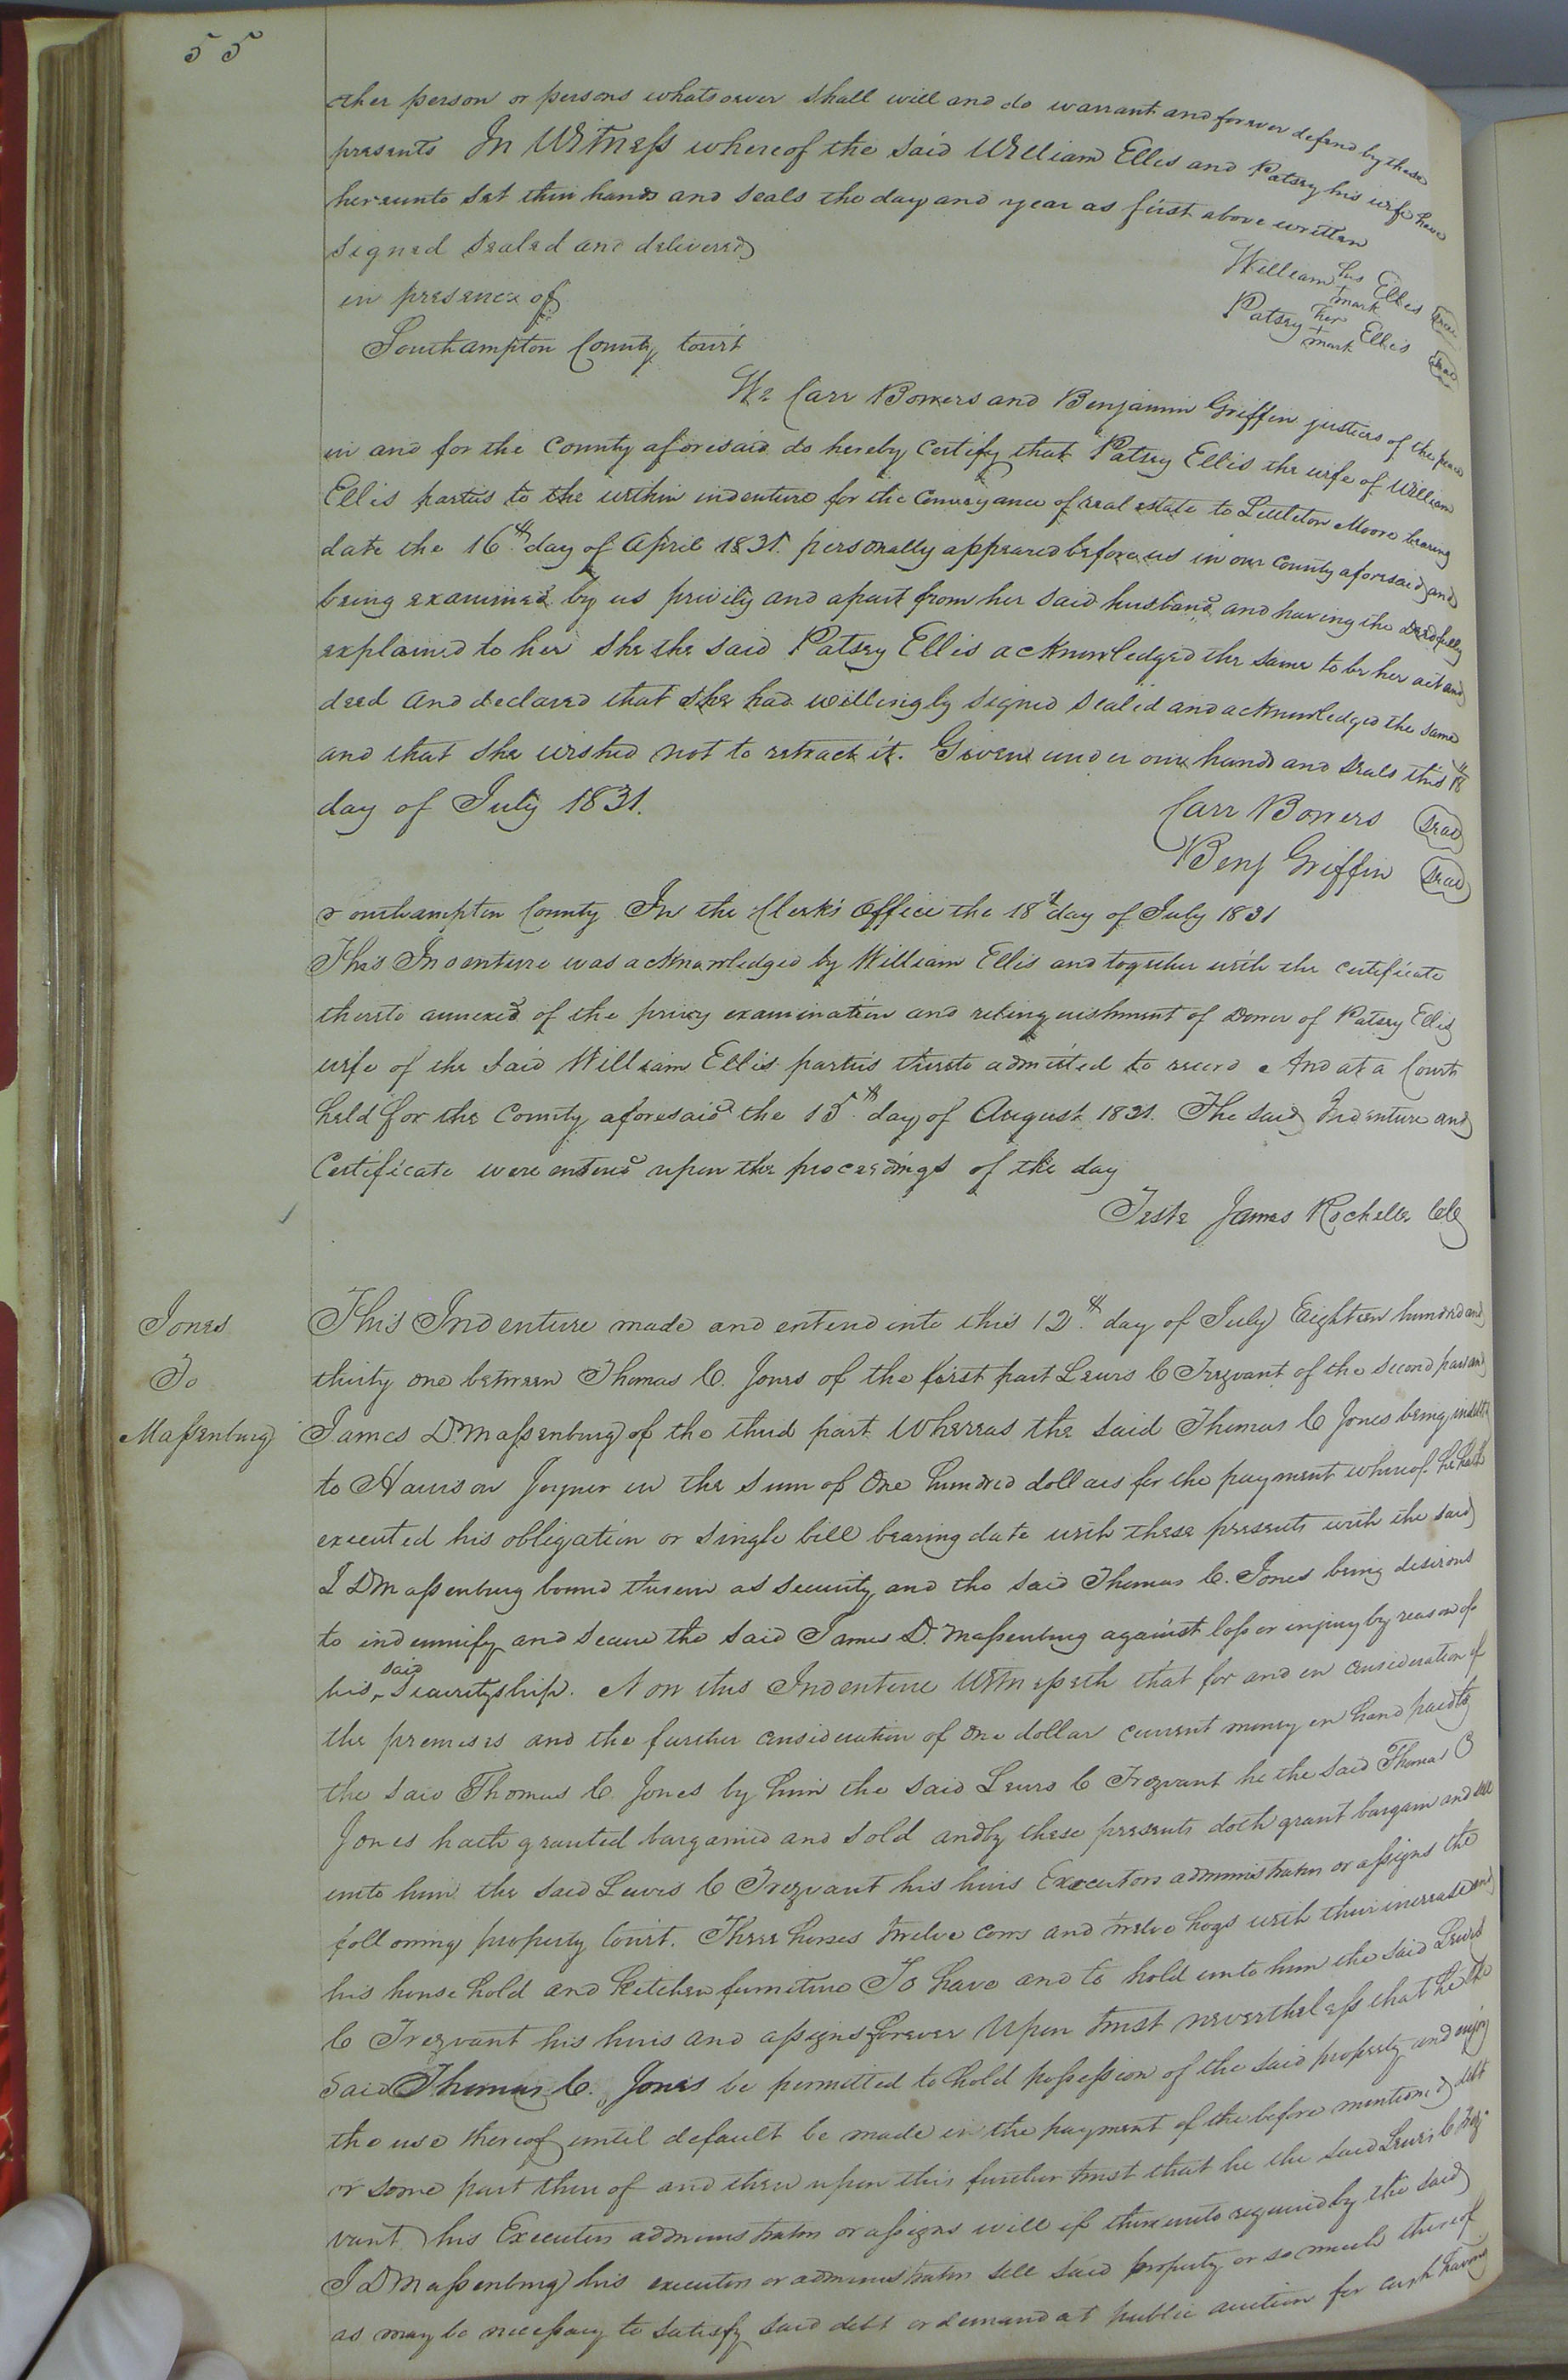 55
other person or persons whatsoever shall will and do warrant and forever defend by these
presents In Witness whereof the said William Ellis and Patsey his wife have
hereunto set their hands and seals the day and year as first above written
Signed sealed and delivered
in presence of
William his + mark Ellis Seal
Patsey her + mark Ellis Seal
Southampton County Court
We Carr Bowers and Benjamin Griffin justices of the peace
in and for the County aforesaid do hereby certify that Patsey Ellis the wife of William
Ellis parties to the within indenture for the conveyance of real estate to Littleton Moore bearing
date the 16th day of April 1831. personally appeared before us in our County aforesaid and
being examined by us privily and apart from her said husband, and having the deed fully
explained to her she the said Patsey Ellis acknowledged the same to be her act and
deed and declared that she had willingly signed sealed and acknowledged the same
and that she wished not to retract it. Given under our hands and seals this 18th
day of July 1831.
Carr Bowers Seal
Benj Griffin Seal
Southampton County In the Clerk's Office the 18th day of July 1831
This Indenture was acknowledged by William Ellis and together with the certificate
thereto annexed of the privy examination and relinquishment of Dower of Patsey Ellis
wife of the said William Ellis parties thereto admitted to record And at a Court
held for the County aforesaid the 15th day of August 1831. The said Indenture and
Certificate were entered upon the proceedings of the day
Teste James Rochelle Clk
Jones
To
Massenburg
This Indenture made and entered into this 12th day of July Eighteen hundred and
thirty one between Thomas C. Jones of the first part Lewis C Trezvant of the second part and
James D. Massenburg of the third part Whereas the said Thomas C Jones being indebted
to Harrison Joyner in the sum of One hundred dollars for the payment whereof he hath
executed his obligation or single bill bearing date with these presents with the said
J D Massenburg bound therein as security and the said Thomas C. Jones being desirous
to indemnify and secure the said James D. Massenburg against loss or injury by reason of
his said Securityship. Now this Indenture Witnesseth that for and in consideration of
the premises and the further consideration of one dollar current money in hand paid to
the said Thomas C. Jones by him the said Lewis C Trezvant he the said Thomas C
Jones hath granted bargained and sold and by these presents doth grant bargain and sell
unto him the said Lewis C Trezvant his heirs Executors administrators or assigns the
following property towit. Three horses twelve cows and twelve hogs with their increase and
his house hold and Kitchen furniture To have and to hold unto him the said Lewis
C Trezvant his heirs and assigns forever Upon trust nevertheless that he the
said Thomas C. Jones be permitted to hold possession of the said property and enjoy
the use thereof until default be made in the payment of the before mentioned debt
or some part thereof and then upon this further trust that he the said Lewis C Trez-
vant his Executors administrators or assigns will if thereunto required by the said
J D Massenburg his executors or administrators sell said property or so much thereof
as may be necessary to satisfy said debt or demand at public auction for cash having